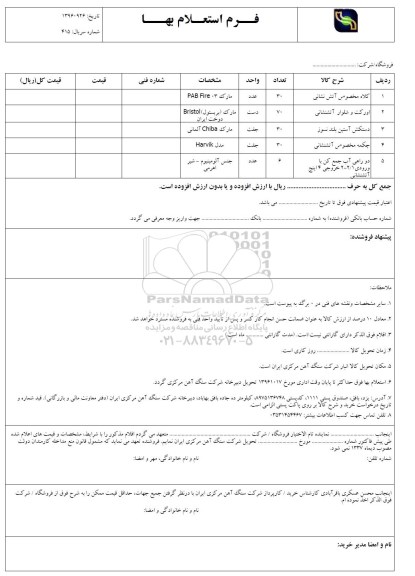 فـــرم استعـــلام بهـــا
تاریخ: ۱۳۹۶/۰۹/۲۶
شماره سریال: ۴۱۵
فروشگاه/شرکت:
ردیف شرح کالا تعداد واحد مشخصات شماره فنی قیمت قیمت کل(ریال)
۱ کلاه مخصوص آتش نشانی ۳۰ عدد مارک PAB Fire ۰۳
۲ اورکت و شلوار آتشنشانی ۷۰ دست مارک ابریستول Bristol دوخت ایران
۳ دستکش آستین بلند نسوز ۳۰ جفت مارک Chiba آلمانی
۴ چکمه مخصوص آتشنشانی ۳۰ جفت مدل Harvik
۵ دو راهی آب جمع کن با ۶ عدد جنس آلومینیوم - شیر
آتشنشانی اهرمی
جمع کل به حرف ریال با ارزش افزوده و یا بدون ارزش افزوده است.
اعتبار قیمت پیشنهادی فوق تا تاریخ می باشد.
شماره حساب بانکی (فروشنده) به شماره بانک جهت واریز وجه معرفی می گردد.
پیشنهاد فروشنده:
ParsNamadData
پایگاه اطلاع رسانی مناقصه و مزایده
۰۲۱-۸۸۳۴۹۶۷۰-۵
ملاحظات:
۱. سایر مشخصات ونقشه های فنی در ۰ برگ به پیوست است.
۲. معادل ۱۰ درصد از ارزش کالا به عنوان ضمانت حسن انجام کار کسر و پس از تایید واحد فنی به فروشنده مسترد خواهد شد.
۳. اقلام فوق الذکر دارای گارانتی نیست است. (مدت گارانتی ماه است)
۴. زمان تحویل کالا روز کاری است.
۵. مکان تحویل کالا انبار شرکت سنگ آهن مرکزی ایران است.
۶. استعلام بها فوق حداکثر تا پایان وقت اداری مورخ ۱۳۹۶/۱۰/۱۷ تحویل دبیرخانه شرکت سنگ آهن مرکزی گردد.
۷. آدرس: یزد، بافق، صندوق پستی ۱۱۱۱، کدپستی ۸۹۷۵۱۳۶۷۴۸، کیلومتر ده جاده بافق بهاباد، دبیرخانه شرکت سنگ آهن مرکزی ایران (دفتر معاونت مالی و بازرگانی). قید شماره و
تاریخ درخواست خرید و شرح کالا بر روی پاکت پستی الزامی است.
۸. تلفن تماس جهت کسب اطلاعات بیشتر:
اینجانب نماینده تام الاختیار فروشگاه / شرکت متعهد می گردم اقلام مذکور را با شرایط، مشخصات و قیمت های اعلام شده
طی پیش فاکتور شماره مورخ تحویل شرکت سنگ آهن مرکزی ایران نمایم. فروشنده تعهد می نماید که مشمول قانون منع مداخله کارمندان دولت
مصوب دیماه ۱۳۳۷ نمی شود.
شماره تلفن: نام و نام خانوادگی، مهر و امضا:
اینجانب محسن عسکری باقرآبادی کارشناس خرید / کارپرداز شرکت سنگ آهن مرکزی ایران با درنظر گرفتن جمیع جهات، حداقل قیمت ممکن را به شرح فوق از فروشگاه / شرکت
فوق الذکر اخذ نموده ام.
نام و نام خانوادگی و امضا:
نام و امضا مدیر خرید: